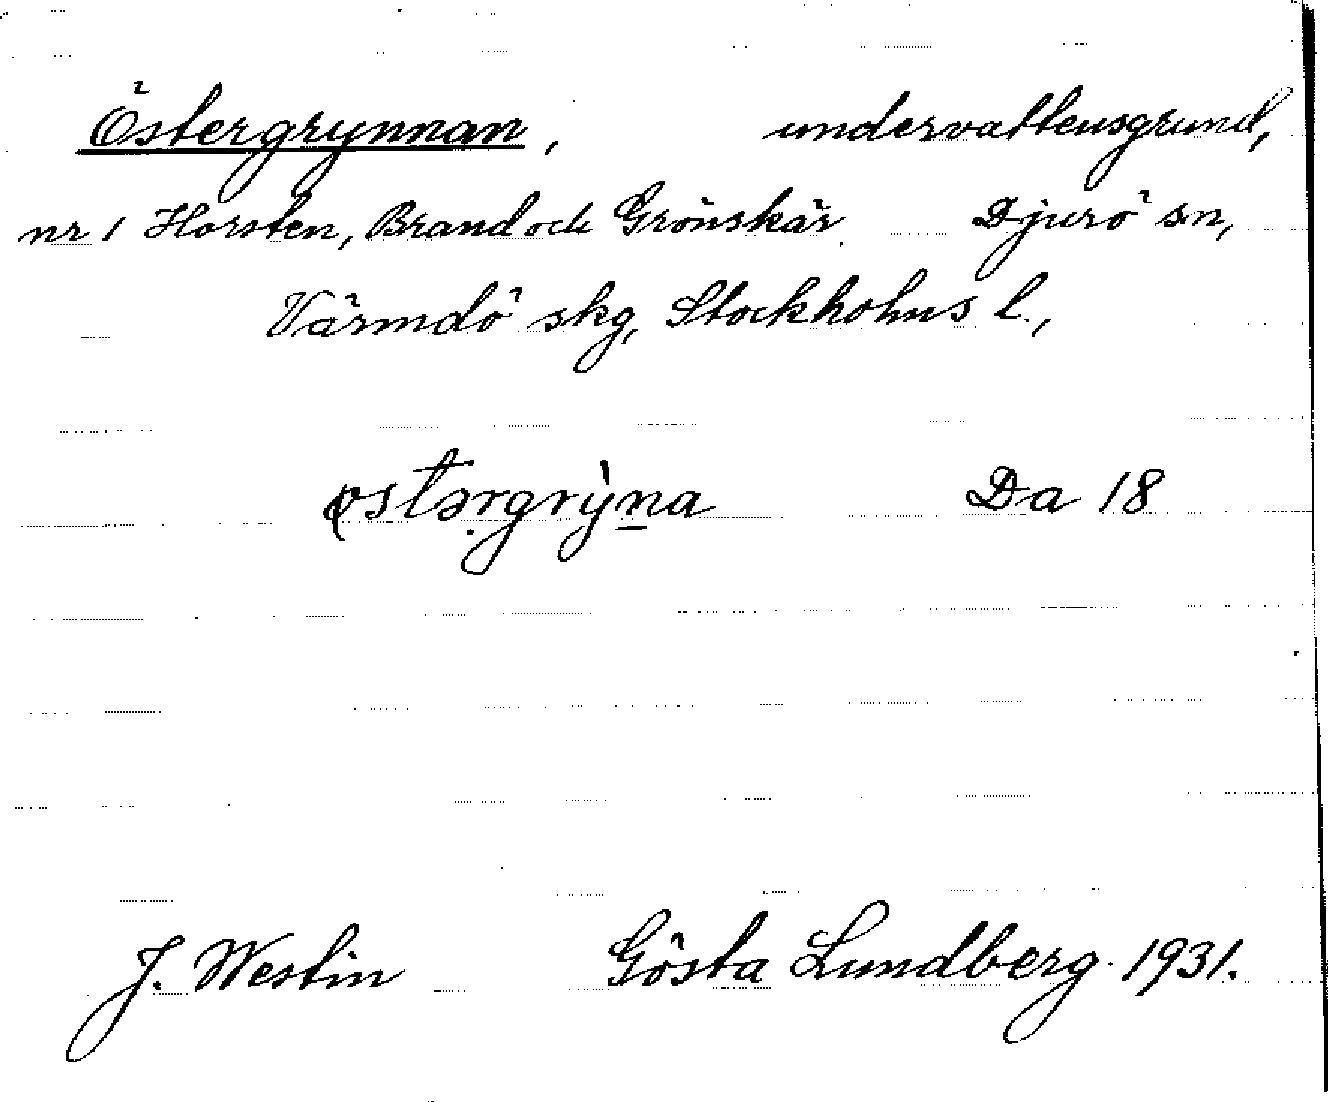 Östergrynnan, undervattensgrund,
nr 1 Horsten, Brand och Grönskär Djurö sn,
Värmdö skg, Stockholms l.,
østərgrỳna Da 18
J. Westin Gösta Lundberg. 1931.